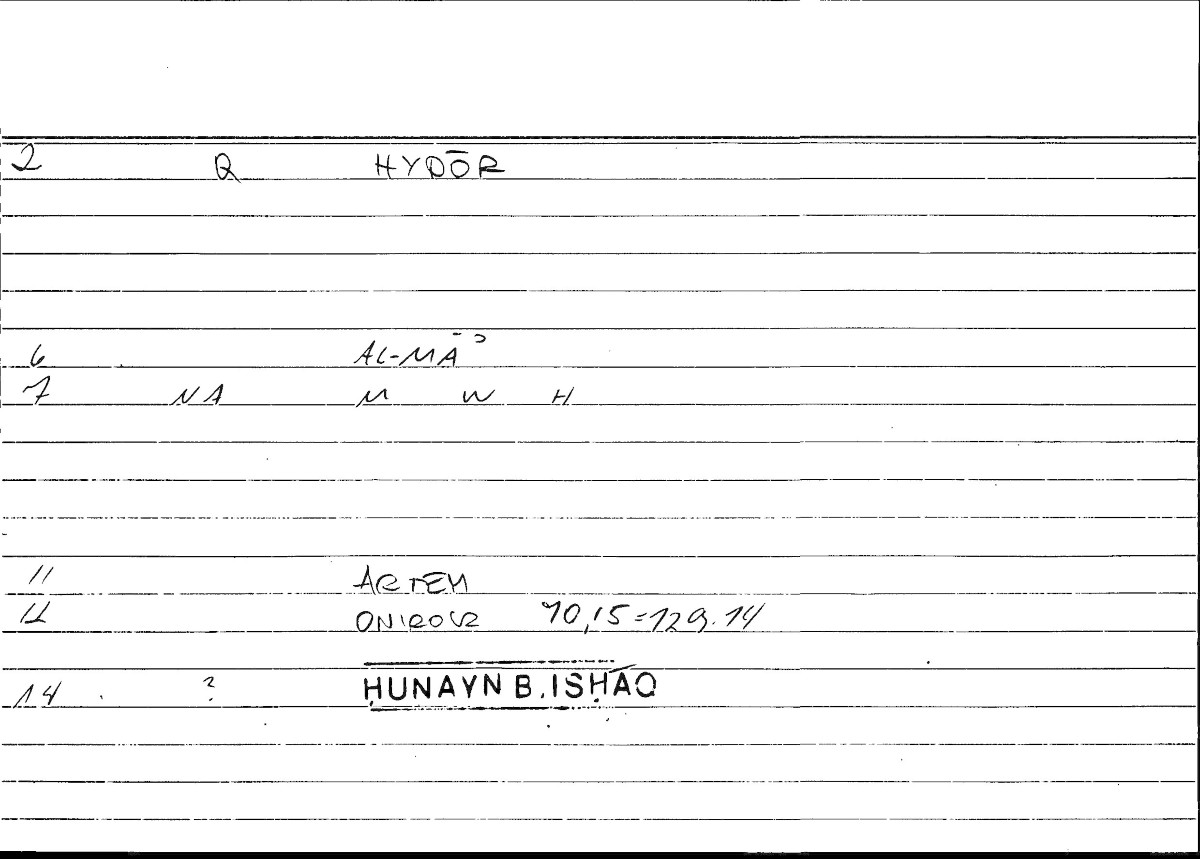 2 Q HYDŌR
6 AL-MĀʾ
7 NA M W H
11 ARTEM
12 ONIROCR 10,15=129.14
14 ? ḤUNAYN B. ISḤĀQ